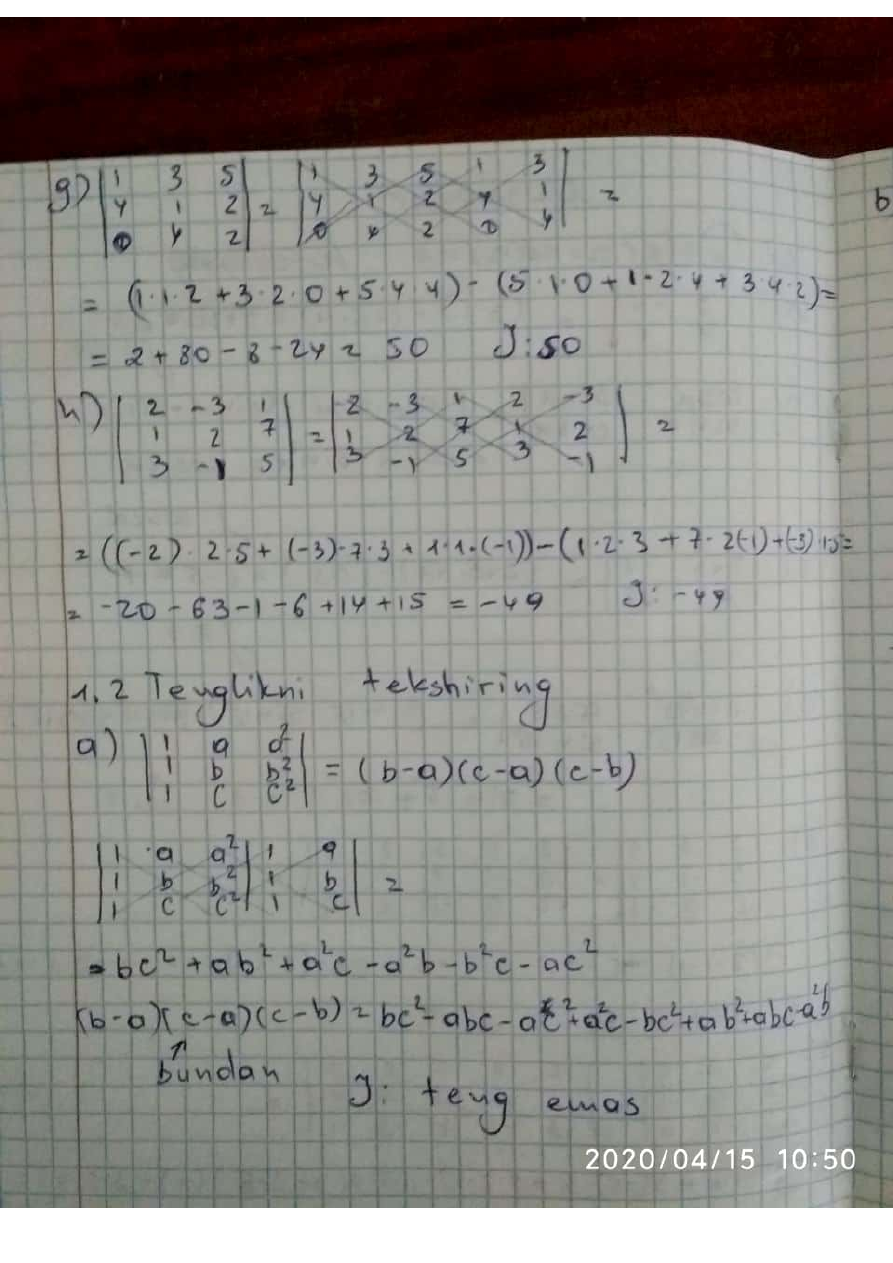 g) | 1 3 5 | = | 1 3 5 1 3 | =
| 4 1 2 | | 4 1 2 4 1 |
| 0 4 2 | | 0 4 2 0 4 |
= (1·1·2 + 3·2·0 + 5·4·4) - (5·1·0 + 1·2·4 + 3·4·2) =
= 2 + 80 - 8 - 24 = 50 J: 50
h) | 2 -3 1 | = | 2 -3 1 2 -3 | =
| 1 2 7 | | 1 2 7 1 2 |
| 3 -1 5 | | 3 -1 5 3 -1 |
= ((-2)·2·5 + (-3)·7·3 + 1·1·(-1)) - (1·2·3 + 7·2(-1) + (-3)·1·5 =
= -20 - 63 - 1 - 6 + 14 + 15 = -49 J: -49
1.2 Tenglikni tekshiring
a) | 1 a a² | = (b-a)(c-a)(c-b)
| 1 b b² |
| 1 c c² |
| 1 a a² | 1 a | =
| 1 b b² | 1 b |
| 1 c c² | 1 c |
= bc² + ab² + a²c - a²b - b²c - ac²
(b-a)(c-a)(c-b) = bc² - abc - ac² + a²c - bc² + ab² + abc - a²b
↑
bundan
J: teng emas
2020/04/15 10:50
b